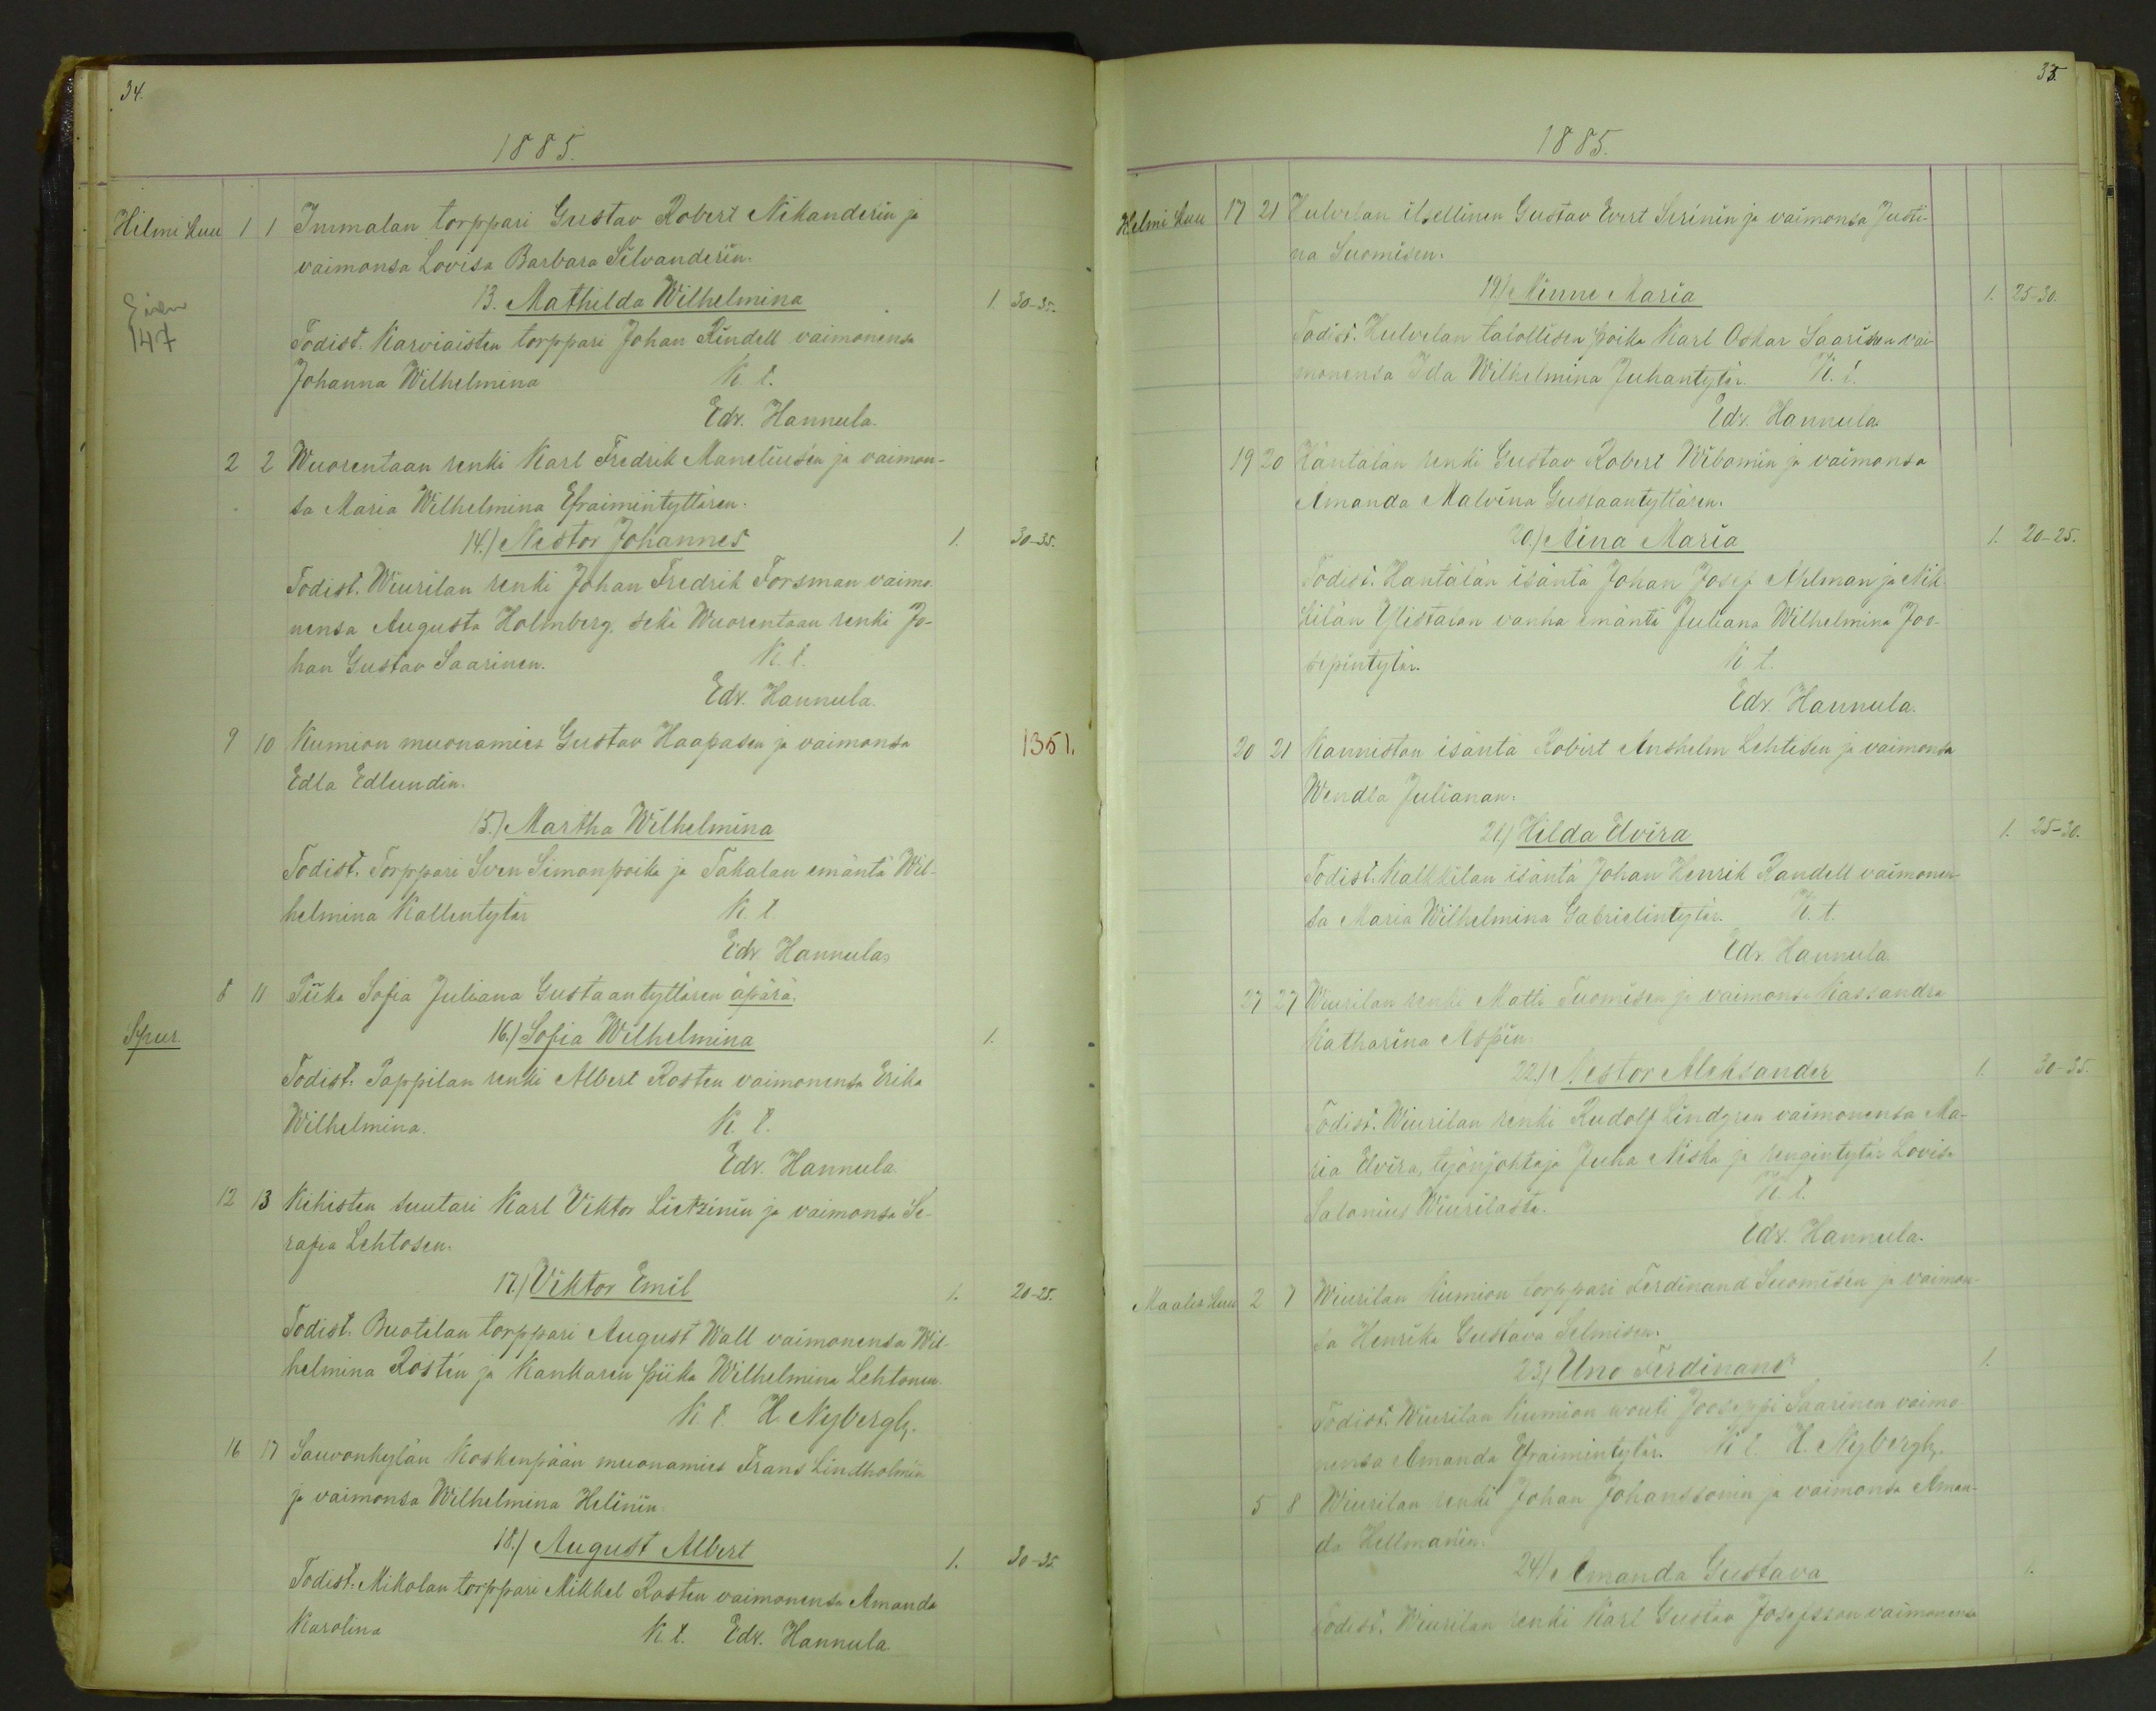 34.
1885.
Helmi kuu 1 1 Immalan torppari Gustav Robert Nikanderin ja
vaimonsa Lovisa Barbara Silvanderin.
13. Mathilda Wilhelmina 1 30-35.
147
Todist. Karviaisten torppari Johan Rindell vaimonensa
Johanna Wilhelmina K. t.
Edv. Hannula.
2 2 Wuorentaan renki Karl Fredrik Maneliusen ja vaimon-
sa Maria Wilhelmina Efraimintyttären.
14.) Nestor Johannes 1. 30-35.
Todist. Wiurilan renki Johan Fredrik Forsman vaimo-
nensa Augusta Holmberg, sekä Wuorentaan renki Jo-
han Gustav Saarinen. K. t.
Edv. Hannula.
9 10 Kumion muonamies Gustav Haapasen ja vaimonsa 1351.
Edla Edlundin.
15.) Martha Wilhelmina
Todist. Torppari Sven Simonpoika ja Takalan emäntä Wil-
helmina Kallentytär K. t.
Edv. Hannula.
8 11 Piika Sofia Juliana Gustaantyttären äpärä.
Spur. 16.) Sofia Wilhelmina 1.
Todist. Pappilan renki Albert Rosten vaimonensa Erika
Wilhelmina. K. t.
Edv. Hannula
12 13 Kihisten suutari Karl Viktor Lietzinin ja vaimonsa Se-
rafia Lehtosen.
17.) Viktor Emil 1. 20-25.
Todist. Buotilan torppari August Wall vaimonensa Wil-
helmina Rostén ja Kankaren piika Wilhelmina Lehtonen.
K. t. H. Nybergh.
16 17 Sauvonkylän Koskenpään muonamies Frans Lindholmin
ja vaimonsa Wilhelmina Helinin.
18.) August Albert 1. 30-35.
Todist. Mikolan torppari Mikkel Rosten vaimonensa Amanda
Karolina K. t. Edv. Hannula.
35.
1885.
Helmi kuu 17 21 Hulvelan itsellinen Gustav Evert Serinin ja vaimonsa Justi-
na Suomisen.
19.) Minne Maria 1. 25-30.
Todist. Hulvelan talollisen poika Karl Oskar Saarisen vai-
monensa Ida Wilhelmina Juhantytär. K. t.
Edv. Hannula
19 20 Häntälän renki Gustav Robert Wibomin ja vaimonsa
Amanda Malvina Gustaantyttären.
20.) Aina Maria 1. 20-25.
Todist. Hantälän isäntä Johan Josef Ahlman ja Nik-
kilän Ylistalon vanha emäntä Juliana Wilhelmina Joo-
sepintytär. K. t.
Edv. Hannula.
20 21 Kanniston isäntä Robert Anshelm Lehtisen ja vaimonsa
Wendla Julianan.
21.) Hilda Elvira 1. 25-30.
Todist. Kalkkilan isäntä Johan Henrik Randell vaimonen-
sa Maria Wilhelmina Gabrielintytär. K. t.
Edv. Hannula
27 27 Wiurilan renki Matti Tuomisen ja vaimonsa Kassandra
Katharina Aspin.
22.) Nestor Aleksander 1. 30-35.
Todist. Wiurilan renki Rudolf Lindgren vaimonensa Ma-
ria Elvira, työnjohtaja Juha Niska ja rengintytär Lovisa
Salonius Wiurilasta. K. t.
Edv. Hannula.
Maalis kuu 2 7 Wiurilan Kumion torppari Ferdinand Suomisen ja vaimon-
sa Henrika Gustava Selmisen.
23.) Uno Ferdinand 1.
Todist. Wiurilan Kumion vouti Jooseppi Saarinen vaimo-
nensa Amanda Efraimintytär. K. t. H. Nybergh.
5 8 Wiurilan renki Johan Johanssonin ja vaimonsa Aman-
da Hellmanin.
24.) Amanda Gustava 1.
Todist. Wiurilan renki Karl Gustav Josefsson vaimonensa